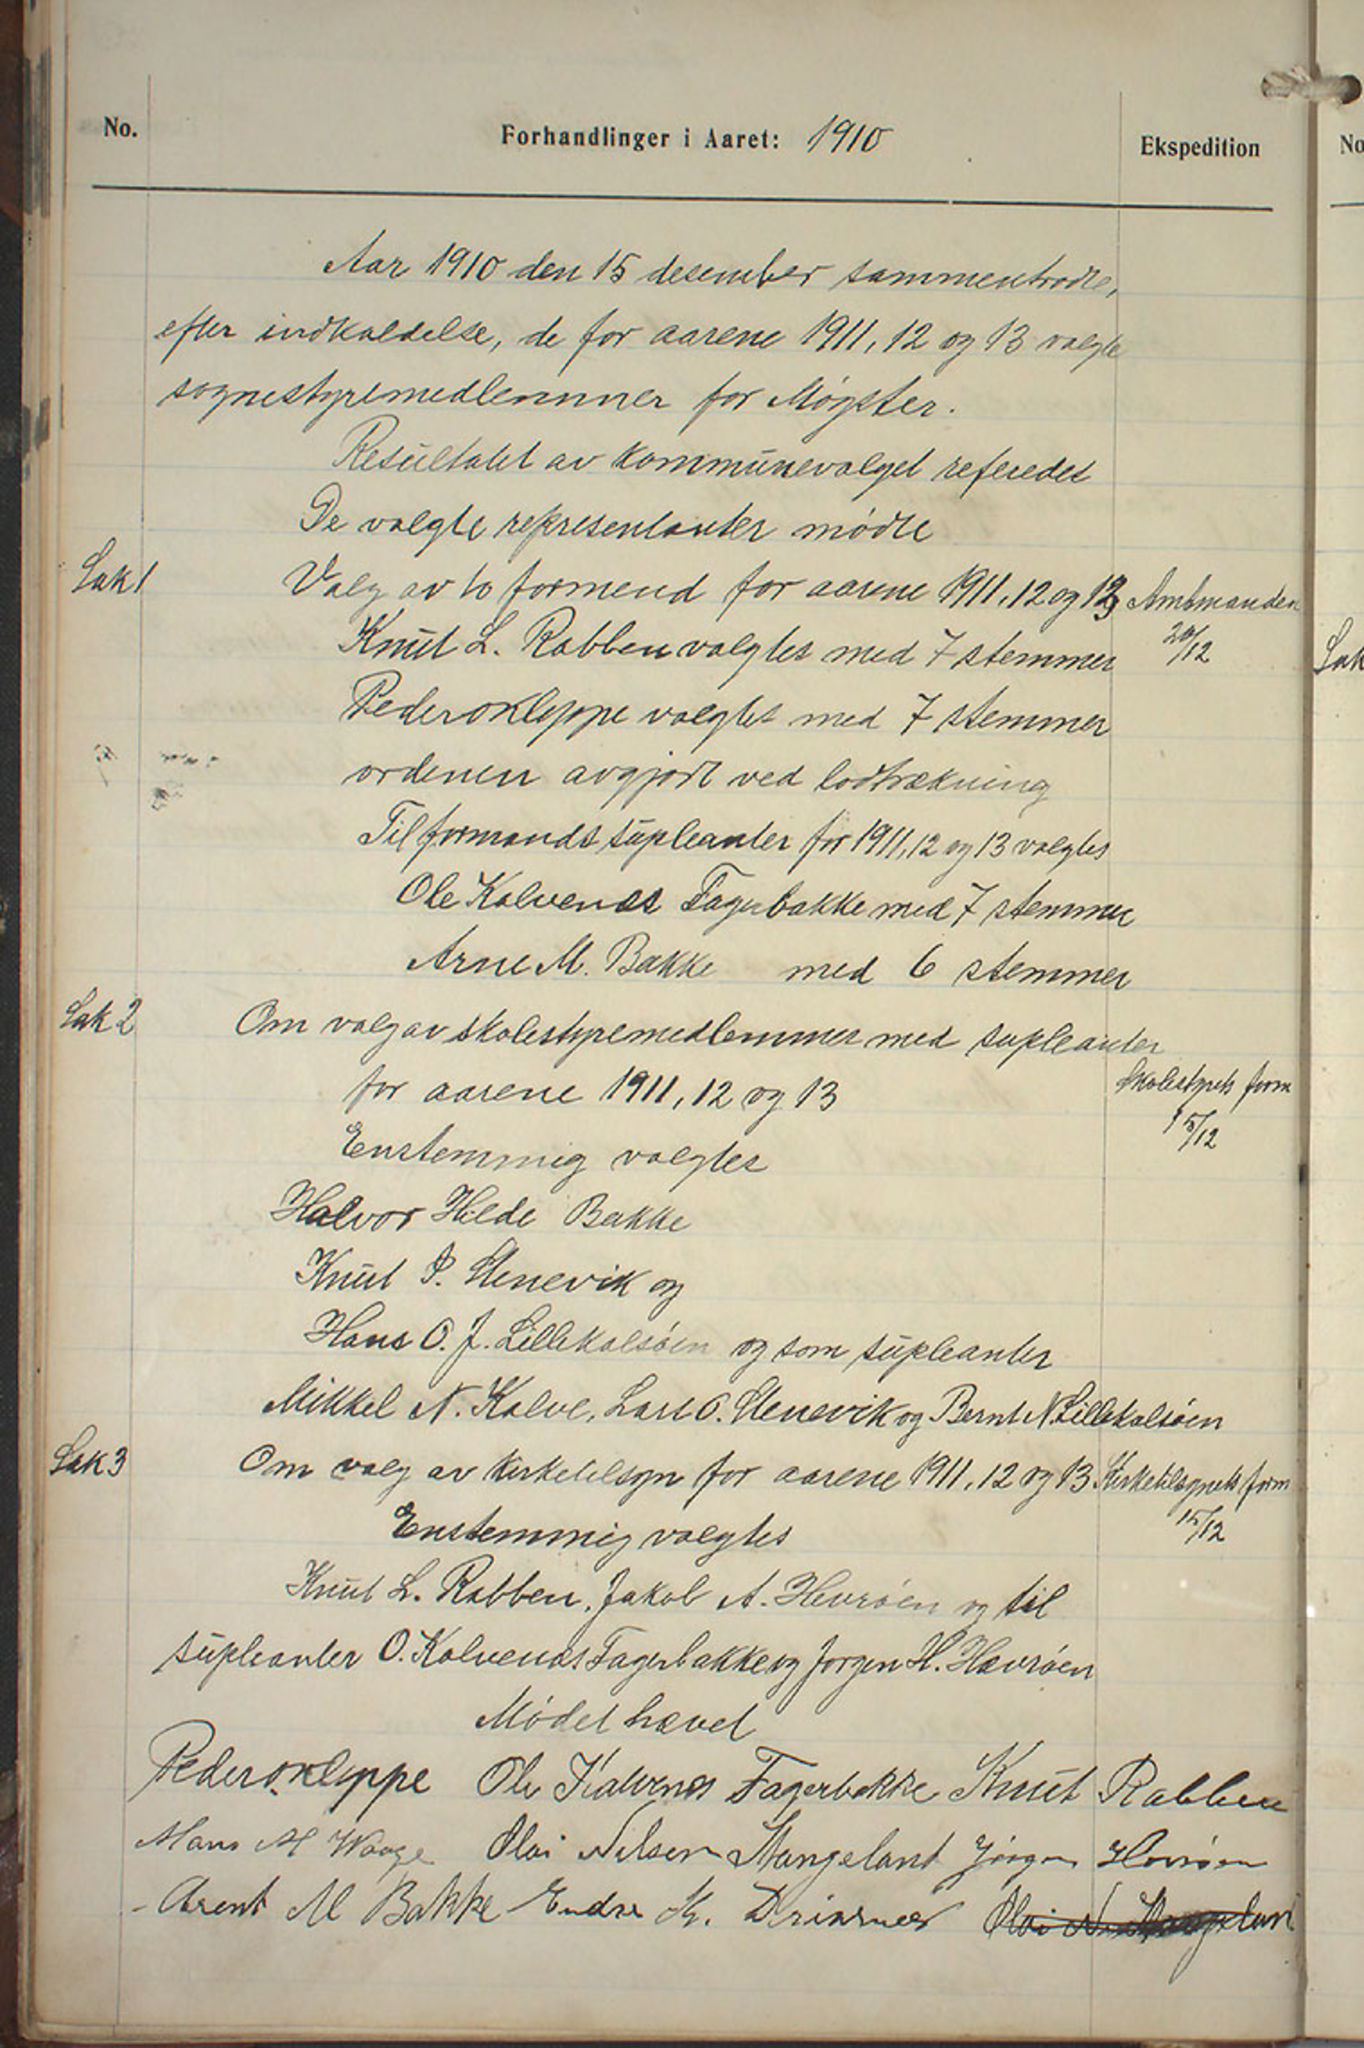 No.
Forhandlinger i Aaret: 1910
Ekspedition
No
Aar 1910 den 15 desember sammentraadte,
efter indkaldelse, de for aarene 1911, 12 og 13 valgte
sognestyremedlemmer for Møgster.
Resultatet av kommunevalget referedes
De valgte representanter mødte
Sak 1
Valg av to formend for aarene 1911, 12 og 13
Amtmanden
20/12
Knut L. Rabben valgtes med 7 stemmer
Sak
Peder O Kleppe valgtes med 7 stemmer
ordenen avgjort ved lodtrækning
Til formandssupleanter for 1911, 12 og 13 valgtes
Ole Kalvenes Fagerbakke med 7 stemmer
Arne M. Bakke med 6 stemmer
Sak 2
Om valg av skolestyremedlemmer med supleanter
for aarene 1911, 12 og 13
Skolestyrets form
15/12
Enstemmig valgtes
Halvor Hilde Bakke
Knut P. Stenevik og
Hans O. J. Lillekalsøen og som supleanter
Mikkel N. Kalve, Lars O. Stenevik og Bernt N. Lillekalsøen
Sak 3
Om valg av kirketilsyn for aarene 1911, 12 og 13
Kirketilsynets form
15/12
Enstemmig valgtes
Knut L. Rabben, Jakob A. Hevrøen og til
supleanter O. Kalvenes Fagerbakke og Jørgen H. Hevrøen
Mødet hævet
Peder O. Kleppe Ole Kalvenes Fagerbakke Knut Rabben
Mons M Waage Olai Nilsen Stangeland Jørgen Hevrøen
Arent M Bakke Endre K. Drivenes Olai N Stangeland